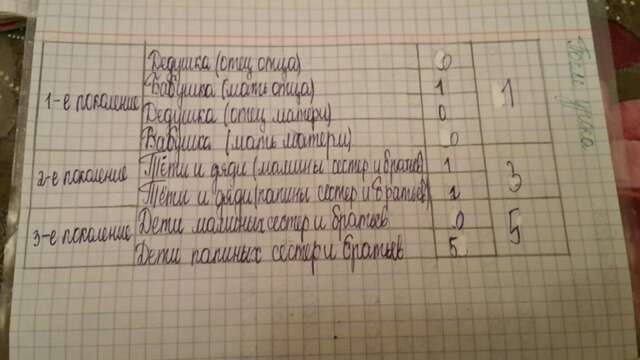 1-е поколение
Дедушка (отец отца) 0
Бабушка (мать отца) 1
Дедушка (отец матери) 0
Бабушка (мать матери) 0
1
2-е поколение
Тёти и дяди (мамины сестёр и братьев) 1
Тёти и дяди (папины сестёр и братьев) 2
3
3-е поколение
Дети маминых сестёр и братьев 0
Дети папиных сестёр и братьев 5
5